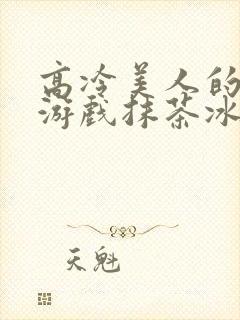 高冷美人的
游戏抹茶冰
天魁